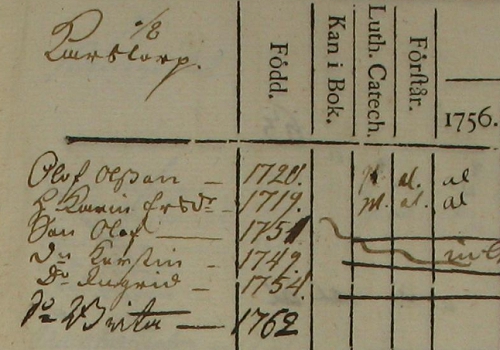 1/8
Karstorp.
Född.
Kan i Bok.
Luth. Catech.
Förstår.
1756.
Olof Olsson — 1720. al. al
H Karin Ersdr — 1719. al. al
Son Olof — 1751
Dr Kerstin — 1749.
Do Ingrid — 1754
Do Brita — 1762